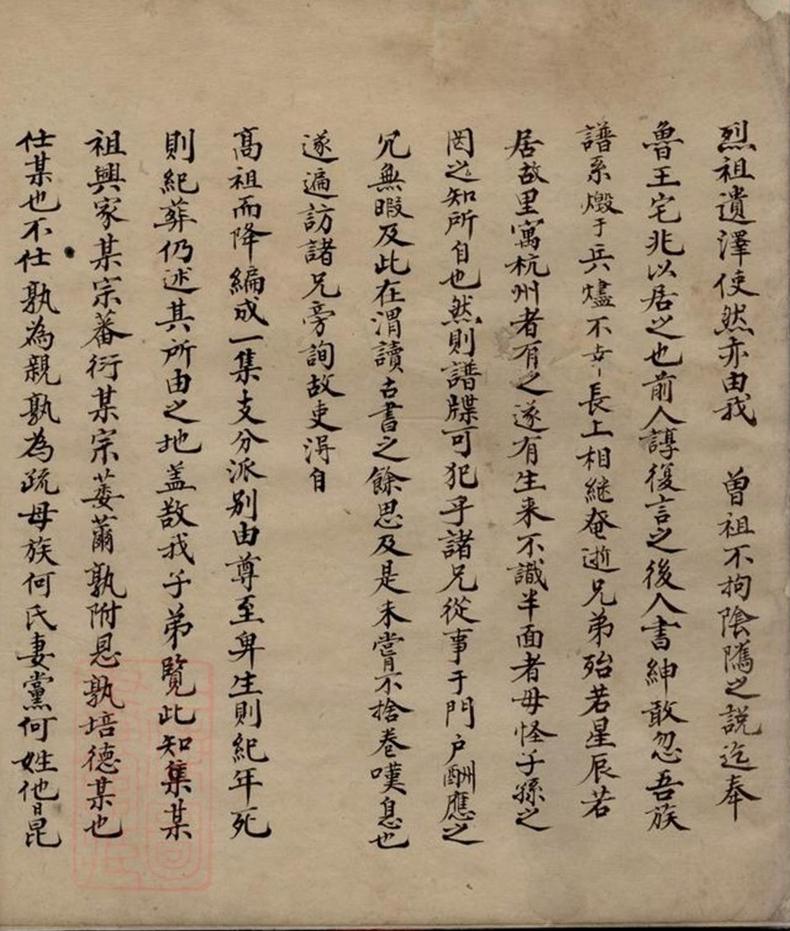 烈祖遺澤使然亦由我　曾祖不拘陰隲之説迄奉
魯王宅兆以居之也前人諄復言之後人書紳敢忽吾族
譜系燬于兵燼不幸長上相継奄逝兄弟殆若星辰若
居故里寓杭州者有之遂有生来不識半面者毋怪子孫之
罔之知所自也然則譜牒可犯乎諸兄從事于門户酬應之
冗無暇及此在渭讀古書之餘思及是未嘗不捨卷嘆息也
遂遍訪諸兄旁詢故吏得自
髙祖而降編成一集支分派别由尊至卑生則紀年死
則紀葬仍述其所由之地盖敎我子弟覽此知集某
祖興家某宗蕃衍某宗萎薾孰附恩孰培德某也
仕某也不仕孰為親孰為疏母族何氏妻黨何姓他日昆